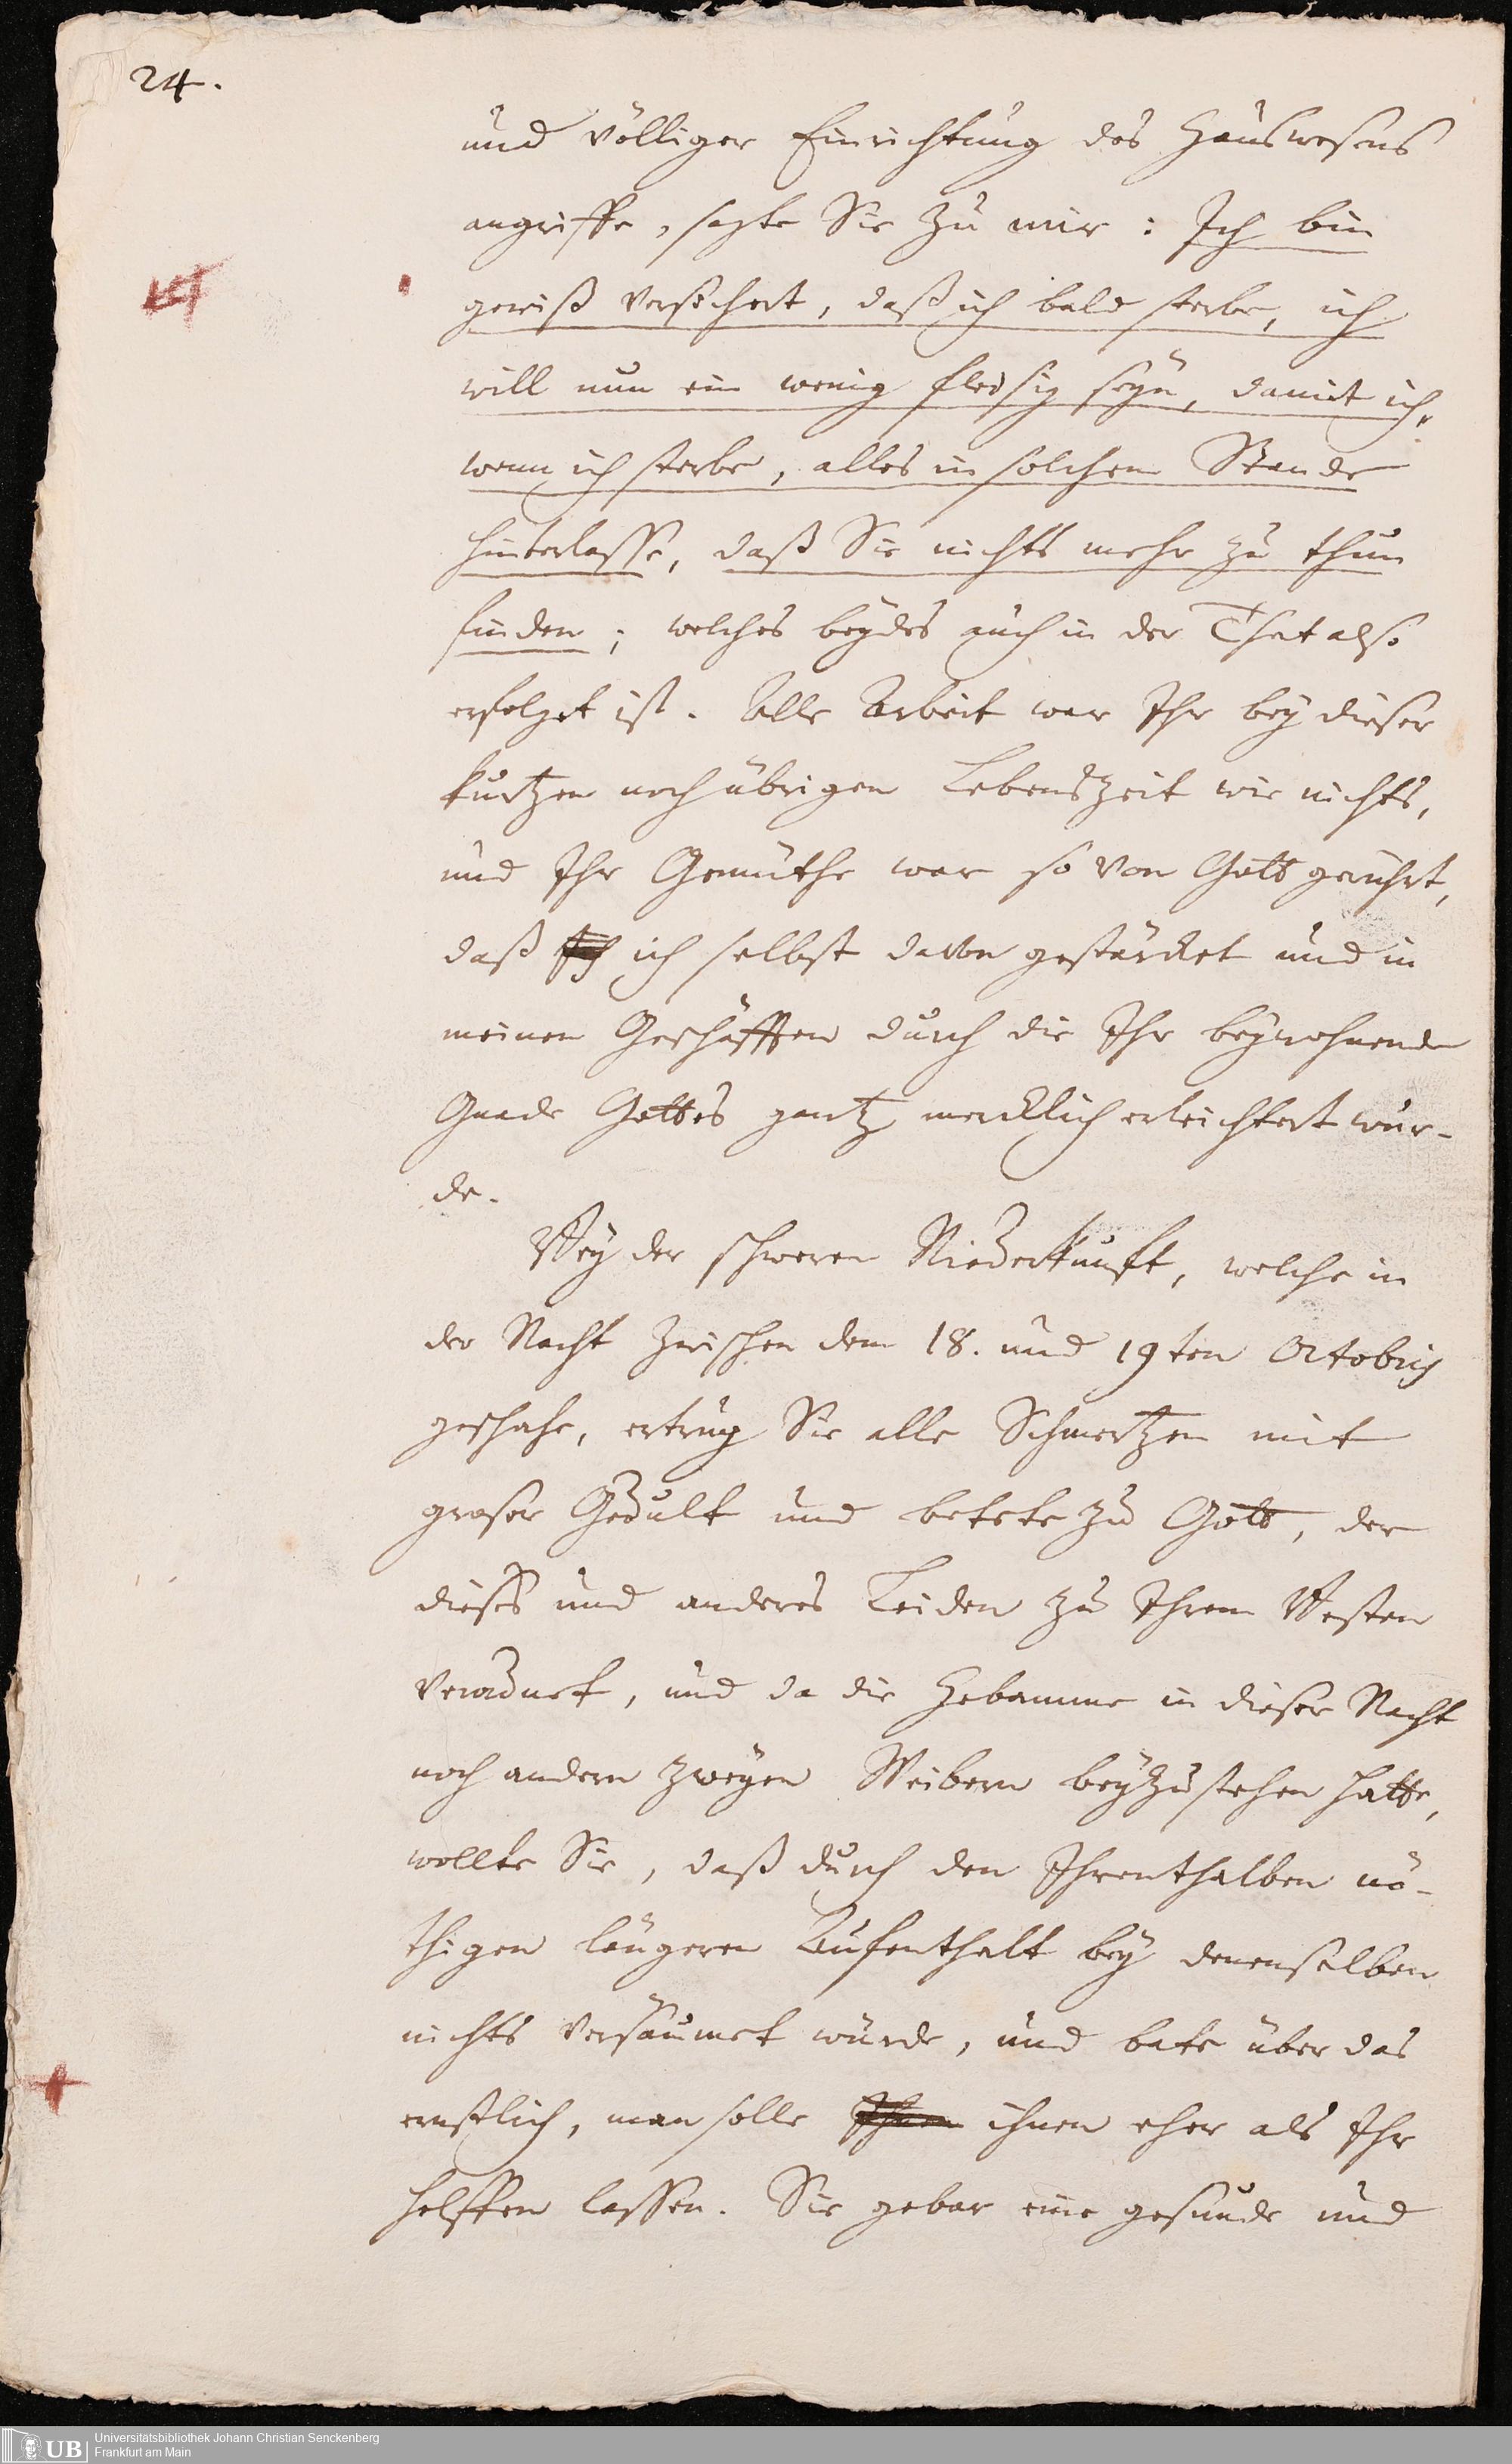 24.
und völliger Einrichtung des Hauswesens
angriffe, sagte Sie zu mir: Ich bin
gewiß versichert, daß ich bald sterbe, ich
will nun ein wenig fleisig seyn, damit ich,
wenn ich sterbe, alles in solchem Stande
hinterlasse, daß Sie nichts mehr zu thun
finden; welches beydes auch in der That also
erfolget ist. Alle Arbeit war Ihr bey dieser
kurtzen noch übrigen Lebenszeit wie nichts,
und Ihr Gemüthe war so von Gott gerührt,
daß ich selbst davon gestärcket und in
meinen Geschäfften durch die Ihr beywohnende
Gnade Gottes gantz mercklich erleichtert wur-
de.
Bey der schweren Niederkunft, welche in
der Nacht zwischen dem 18. und 19ten Octobris
geschahe, ertrug Sie alle Schmertzen mit
groser Gedult und betete zu Gott, der
dieses und anderes Leiden zu Ihrem Besten
verordnet, und da die Hebamme in dieser Nacht
noch andern zweyen Weibern beyzustehen hatte,
wollte Sie, daß durch den Ihrenthalben nö-
thigen längeren Aufenthalt bey denenselben
nichts versäumet würde, und bate über das
ernstlich, man solle Ihnen ihnen eher als Ihr
helffen lassen. Sie gebar eine gesunde und
Universitätsbibliothek Johann Christian Senckenberg
Frankfurt am Main
UB